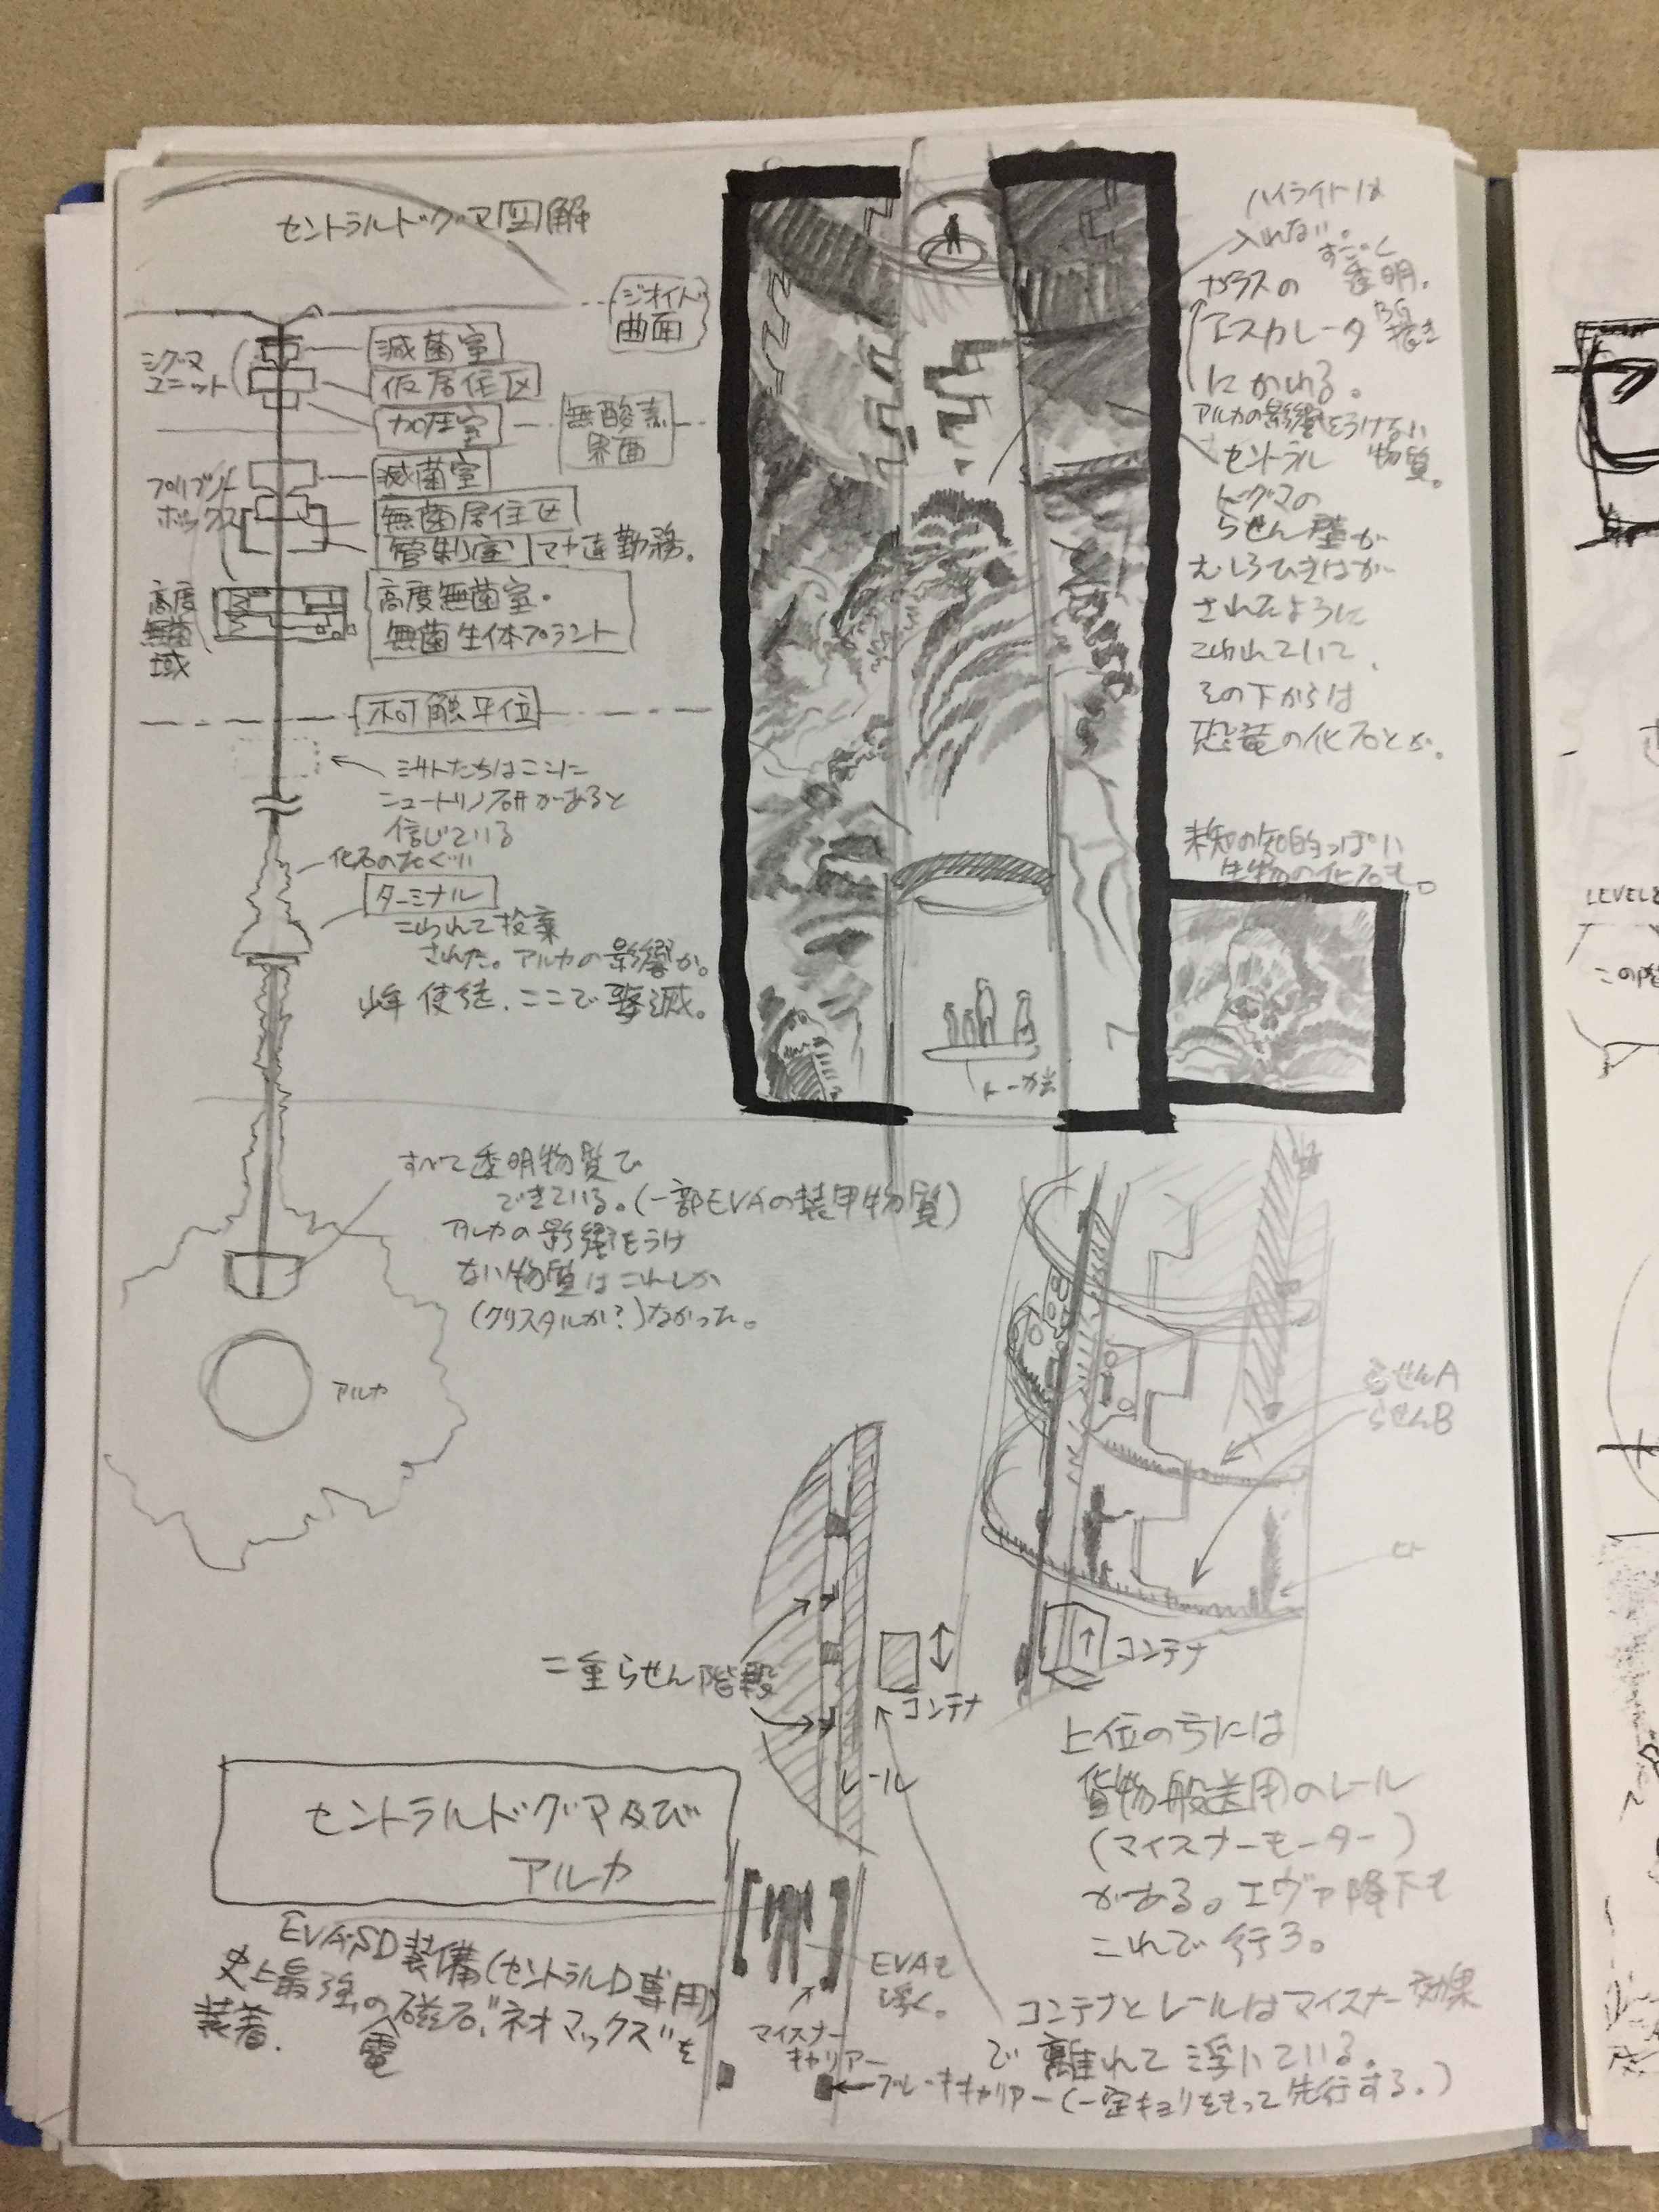 セントラルドグマ図解
ジオイド
曲面
シグマ
ユニット
滅菌室
仮居住区
加圧室
無酸素
界面
プリブノー
ボックス
滅菌室
無菌居住区
管制室
マヤ達勤務。
高度
無菌
域
高度無菌室・
無菌生体プラント
不可触平位
ミサトたちはここに
ニュートリノ研があると
信じている
化石のたぐい
ターミナル
こわれて投棄
された。アルカの影響か。
使徒、ここで撃滅。
すべて透明物質で
できている。(一部EVAの装甲物質)
アルカの影響をうけ
ない物質はこれしか
(クリスタルか?)なかった。
アルカ
ハイライトは
入れない。
すごく
透明。
ガラスの
BG
エスカレータ
にかわる。
アルカの影響をうけない
物質。
セントラル
ドグマの
らせん壁が
むしろひきはが
されたように
こわれていて、
その下からは
恐竜の化石とか。
未知の知的っぽい
生物の化石も。
らせんA
らせんB
ヒト
コンテナ
二重らせん階段
コンテナ
レール
上位の方には
貨物般送用のレール
(マイスナーモーター)
がある。エヴァ降下も
これで行う。
セントラルドグマ及び
アルカ
EVA・SD装備(セントラルD専用)
史上最強の電磁石、“ネオマックス”を
装着.
EVAも
浮く。
マイスナー
キャリアー
コンテナとレールはマイスナー効果
で離れて浮いている。
ブレーキキャリアー(一定キョリをもって先行する。)
LEVEL
この階